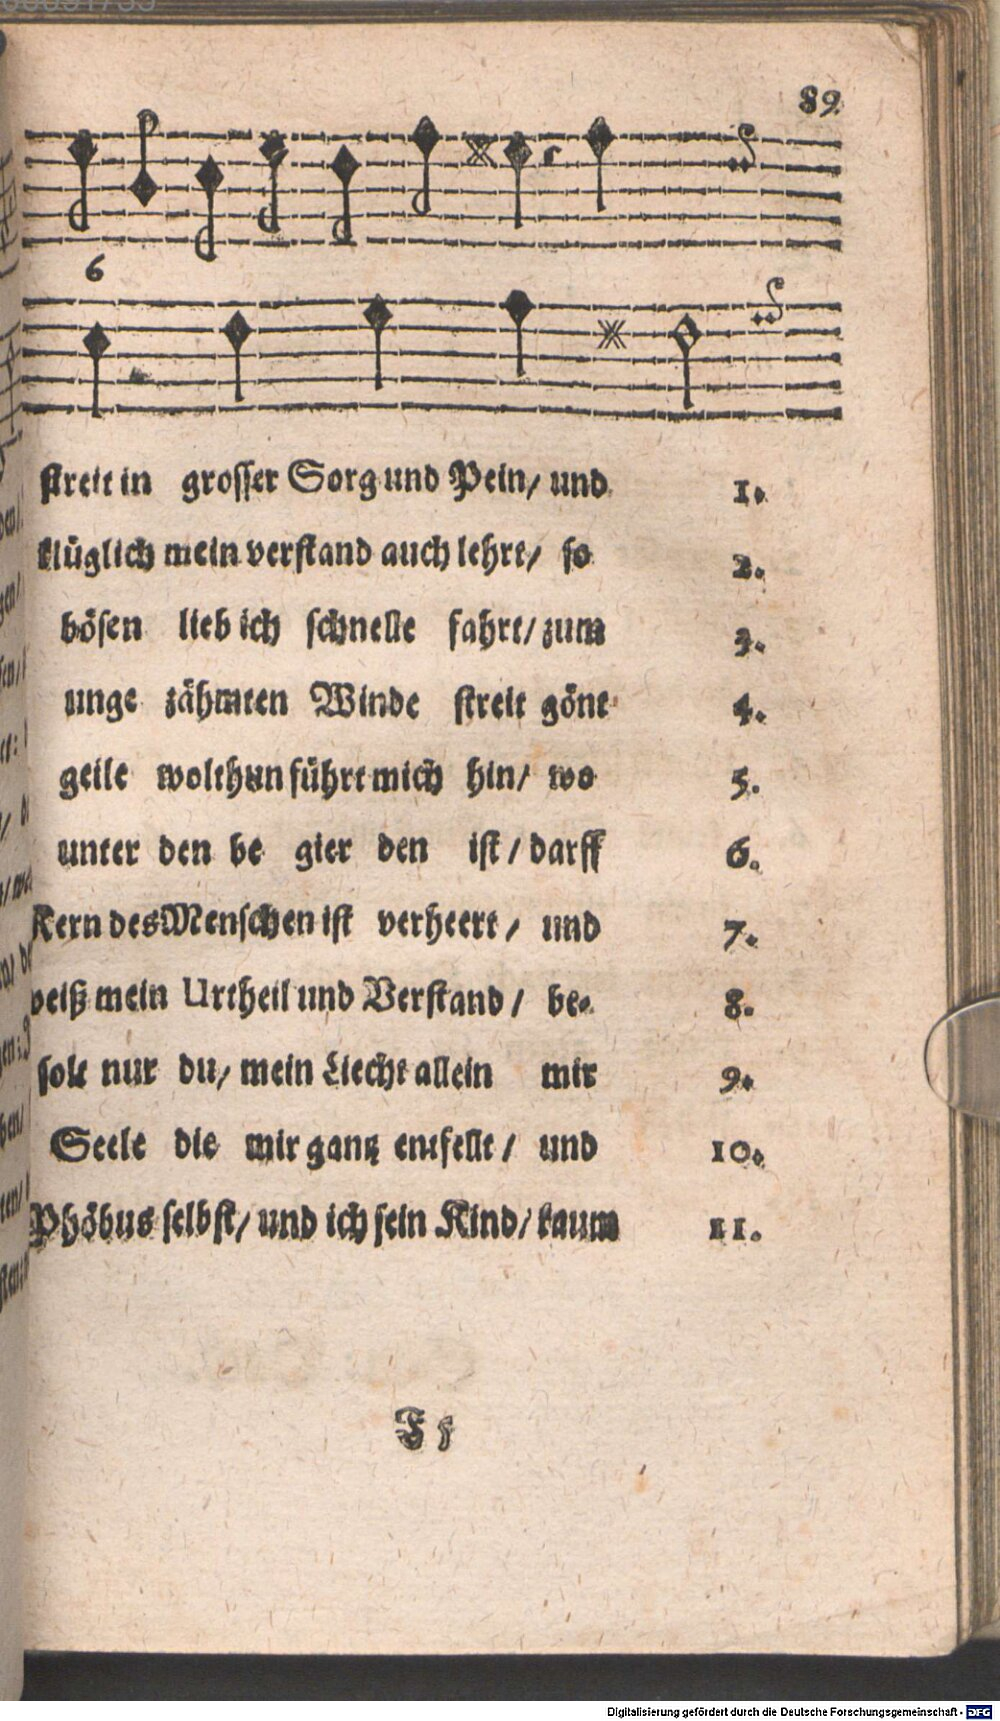 89
6
streit in grosser Sorg und Pein/ und 1.
klüglich mein verstand auch lehrt/ so 2.
bösen lieb ich schnelle fahrt/ zum 3.
unge zähmten Winde streit gönt 4.
geile wolthun führt mich hin/ wo 5.
unter den be gier den ist/ darff 6.
Kern des Menschen ist verheert/ und 7.
weiß mein Urtheil und Verstand/ be- 8.
solt nur du/ mein Liecht allein mir 9.
Seele die mir gantz entfellt/ und 10.
Phöbus selbst/ und ich sein Kind/ kaum 11.
F 5
Digitalisierung gefördert durch die Deutsche Forschungsgemeinschaft - DFG